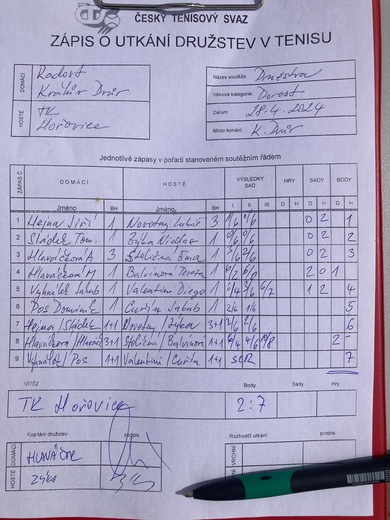 ČESKÝ TENISOVÝ SVAZ
ZÁPIS O UTKÁNÍ DRUŽSTEV V TENISU
DOMÁCÍ
Radost
Králův Dvůr
HOSTÉ
TK
Hořovice
Název soutěže: Družstva
Věková kategorie: Dorost
Datum: 28.4.2024
Místo konání: K. Dvůr
Jednotlivé zápasy v pořadí stanoveném soutěžním řádem
ZÁPAS Č. DOMÁCÍ HOSTÉ VÝSLEDKY SAD HRY SADY BODY
Jméno BH Jméno BH I. II. III. D H D H D H
1 Hejna Jiří 1 Novotný Lukáš 3 1/6 0/6 0 2 1
2 Sládek Tom. 1 Zýka 1 0/6 0/6 0 2 2
3 Hlaváčková A 3 Stoličná Ema 1 3/6 2/6 0 2 3
4 Hlaváčková M 1 Balvínová Tereza 1 6/2 6/0 2 0 1
5 Vyhnálek Jakub 1 Valentini Diego 1 6/7 1 2 4
6 Pos Dominik 1 Cuřín Jakub 1 2/6 1/6 5
7 Hejna/Sládek 1+1 Novotný/Zýka 3+1 2/6 2/6 6
8 Hlaváčková/ Stoličná/Balvínová 1+1 6/4 4/6 2 -
9 Vyhnálek/Pos 1+1 Valentini/Cuřín 1+1 SCR 7
VÍTĚZ Body Sady Hry
TK Hořovice 2:7
Kapitáni družstev podpis
Rozhodčí utkání podpis
DOMÁCÍ HLAVÁČEK
HOSTÉ ZÝKA
VRCHNÍ